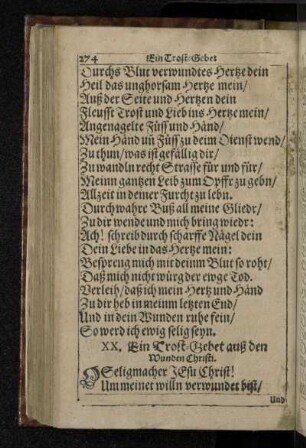 274 Ein Trost/Gebet
Durchs Blut verwundtes Hertze dein
Heil das unghorsam Hertze mein/
Auß der Seite und Hertzen dein
Fleusst Trost und Lieb ins Hertze mein/
Angenagelte Füss und Händ/
Mein Händ uñ Füss zu deim Dienst wend/
Zu thun/ was ist gefällig dir/
Zu wandln recht Strasse für und für/
Meinn gantzen Leib zum Opffr zu gebn/
Allzeit in deiner Furcht zu lebn.
Durch wahre Buß all meine Gliedr/
Zu dir wende und mich bring wiedr:
Ach! schreib durch scharffe Nägel dein
Dein Liebe in das Hertze mein:
Bespreng mich mit deinm Blut so roht/
Daß mich nicht würg der ewge Tod.
Verleih/ daß ich mein Hertz und Händ
Zu dir heb in meinm letzten End/
Und in dein Wunden ruhe fein/
So werd ich ewig selig seyn.
XX. Ein Trost-Gebet auß den
Wunden Christi.
O Seligmacher JEsu Christ!
Um meinet willn verwundet bist/
Und